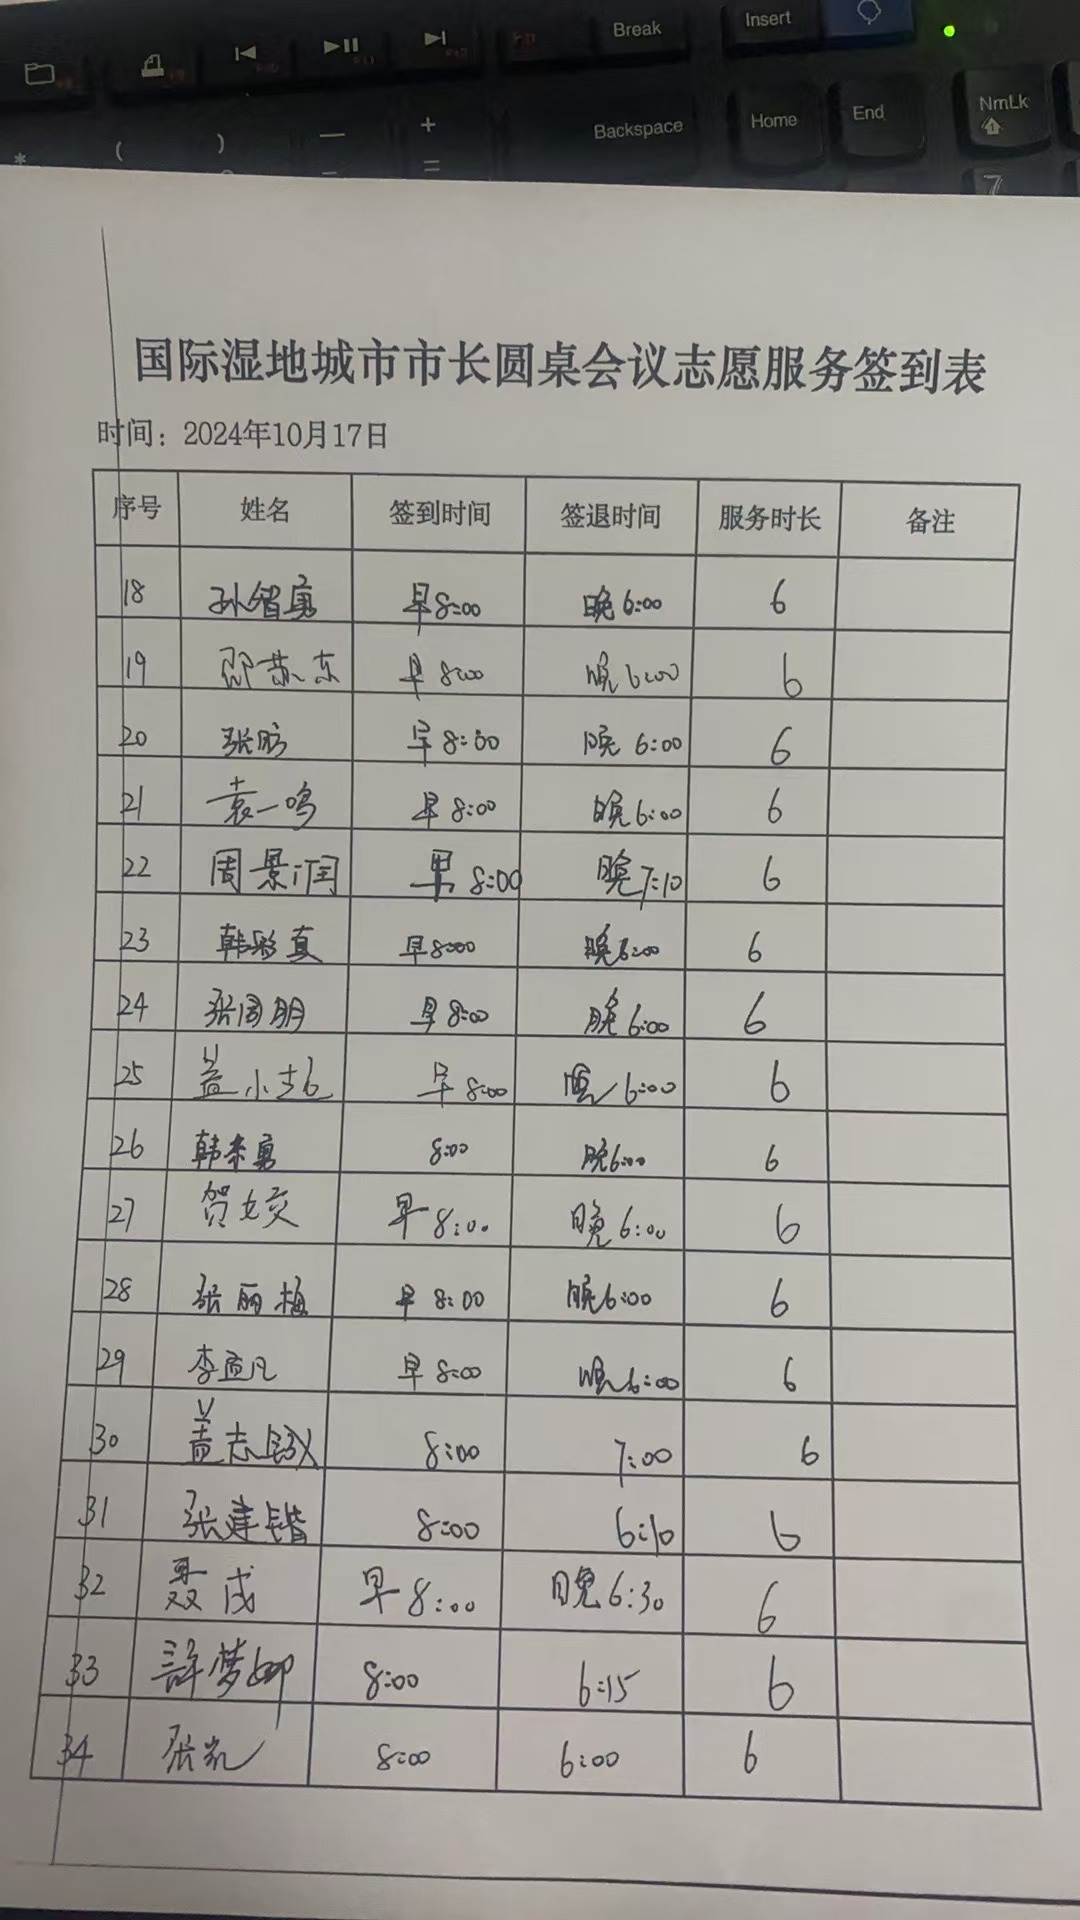 Break
Insert
Backspace
Home
End
NmLk
7
国际湿地城市市长圆桌会议志愿服务签到表
时间：2024年10月17日
序号 姓名 签到时间 签退时间 服务时长 备注
18 孙智勇 早8:00 晚6:00 6
19 邵苏东 早8:00 晚6:00 6
20 张 早8:00 晚6:00 6
21 袁一鸣 早8:00 晚6:00 6
22 周景润 早8:00 晚7:10 6
23 韩彩真 早8:00 晚6:00 6
24 张周朋 早8:00 晚6:00 6
25 盖小 早8:00 晚6:00 6
26 韩来勇 8:00 晚6:00 6
27 贺文姣 早8:00 晚6:00 6
28 张丽梅 早8:00 晚6:00 6
29 李孟凡 早8:00 晚6:00 6
30 盖志 8:00 7:00 6
31 张建锴 8:00 6:10 6
32 聂成 早8:00 晚6:30 6
33 許梦娜 8:00 6:15 6
34 张凯 8:00 6:00 6